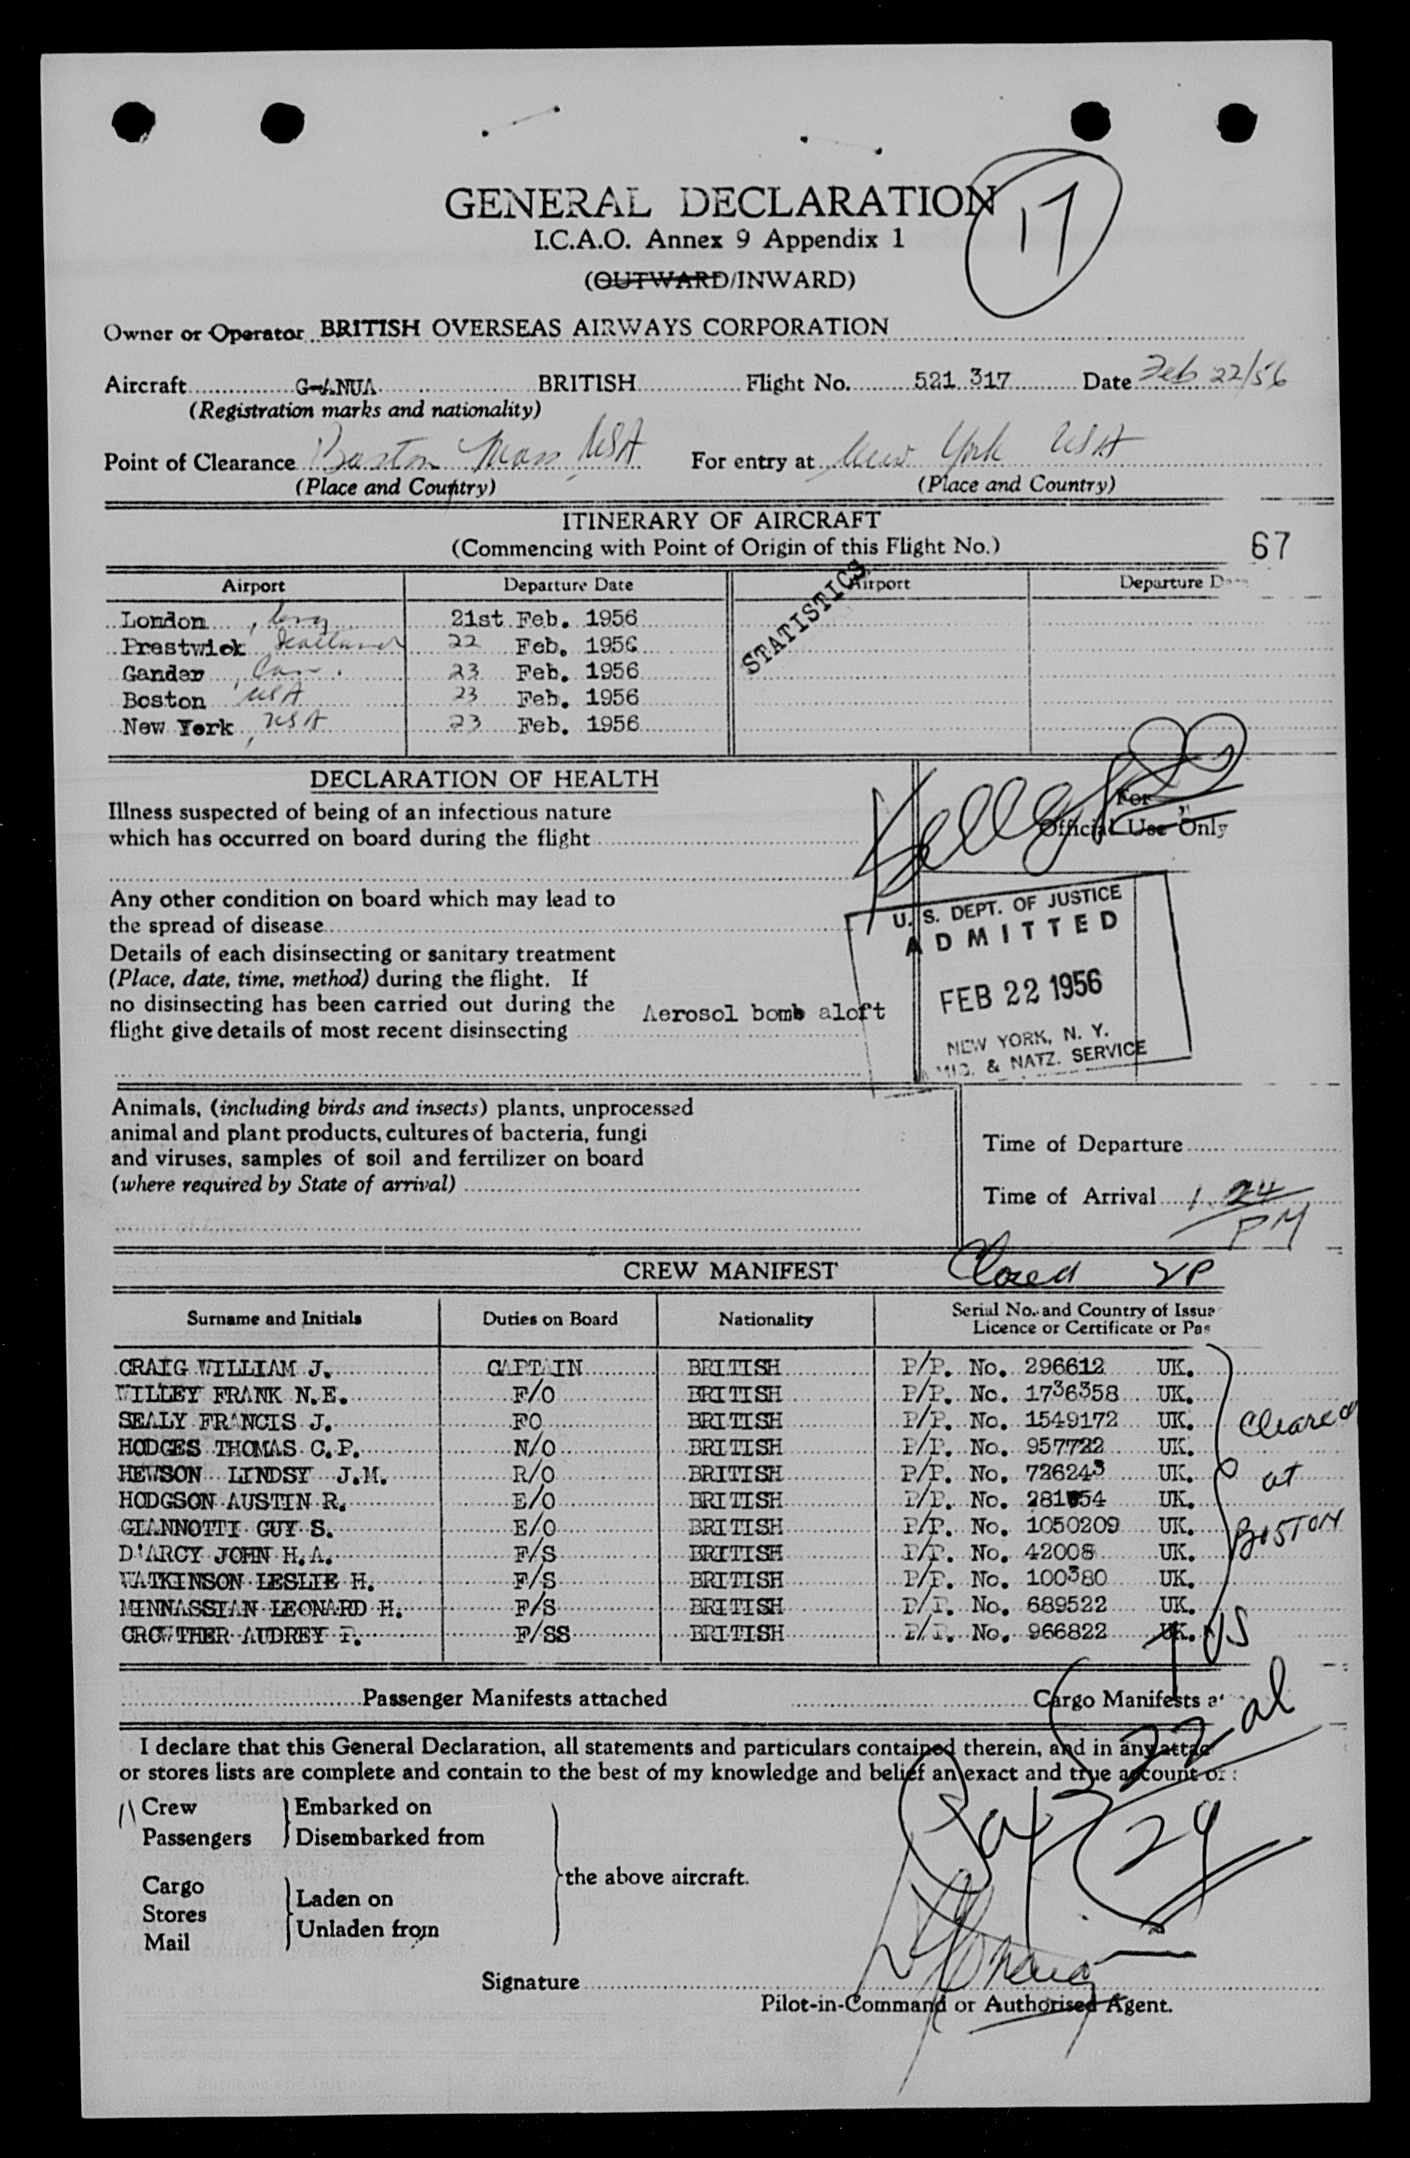 17
GENERAL DECLARATION
I.C.A.O. Annex 9 Appendix 1
(OUTWARD/INWARD)
Owner or Operator BRITISH OVERSEAS AIRWAYS CORPORATION
Aircraft G-ANUA BRITISH Flight No. 521 317 Date Feb 22/56
(Registration marks and nationality)
Point of Clearance Boston Mass USA For entry at New York USA
(Place and Country) (Place and Country)
ITINERARY OF AIRCRAFT
(Commencing with Point of Origin of this Flight No.) 67
Airport Departure Date Airport Departure
STATISTICS
London, Eng 21st Feb. 1956
Prestwick Scotland 22 Feb. 1956
Gander, Can. 23 Feb. 1956
Boston, USA 23 Feb. 1956
New York, USA 23 Feb. 1956
DECLARATION OF HEALTH
Illness suspected of being of an infectious nature
which has occurred on board during the flight
Kelly
For
Official Use Only
Any other condition on board which may lead to
the spread of disease
Details of each disinsecting or sanitary treatment
(Place, date, time, method) during the flight. If
no disinsecting has been carried out during the
flight give details of most recent disinsecting
Aerosol bomb aloft
U. S. DEPT. OF JUSTICE
ADMITTED
FEB 22 1956
NEW YORK, N. Y.
& NATZ. SERVICE
Animals, (including birds and insects) plants, unprocessed
animal and plant products, cultures of bacteria, fungi
and viruses, samples of soil and fertilizer on board
(where required by State of arrival)
Time of Departure
Time of Arrival 1.24
PM
CREW MANIFEST
Closed
Surname and Initials Duties on Board Nationality Serial No. and Country of Issue
Licence or Certificate or Pas
CRAIG WILLIAM J. CAPTAIN BRITISH P/P. No. 296612 UK.
WILLEY FRANK N.E. F/O BRITISH P/P. No. 1736358 UK.
SEALY FRANCIS J. FO BRITISH P/P. No. 1549172 UK.
HODGES THOMAS C.P. N/O BRITISH P/P. No. 957722 UK.
HEWSON LINDSY J.M. R/O BRITISH P/P. No. 726243 UK.
HODGSON AUSTIN R. E/O BRITISH P/P. No. UK.
GIANNOTTI GUY S. E/O BRITISH P/P. No. 1050209 UK.
D'ARCY JOHN H.A. F/S BRITISH P/P. No. 42008 UK.
WATKINSON LESLIE H. F/S BRITISH P/P. No. 100380 UK.
MINNASSIAN LEONARD H. F/S BRITISH P/P. No. 689522 UK.
CROWTHER AUDREY P. F/SS BRITISH P/P. No. 966822 UK. US
Cleared
at
BOSTON
Passenger Manifests attached Cargo Manifests
I declare that this General Declaration, all statements and particulars contained therein, and in any attac
or stores lists are complete and contain to the best of my knowledge and belief an exact and true account of:
11 Crew
Passengers
Embarked on
Disembarked from
the above aircraft.
Cargo
Stores
Mail
Laden on
Unladen from
22
29
Signature
Pilot-in-Command or Authorised Agent.